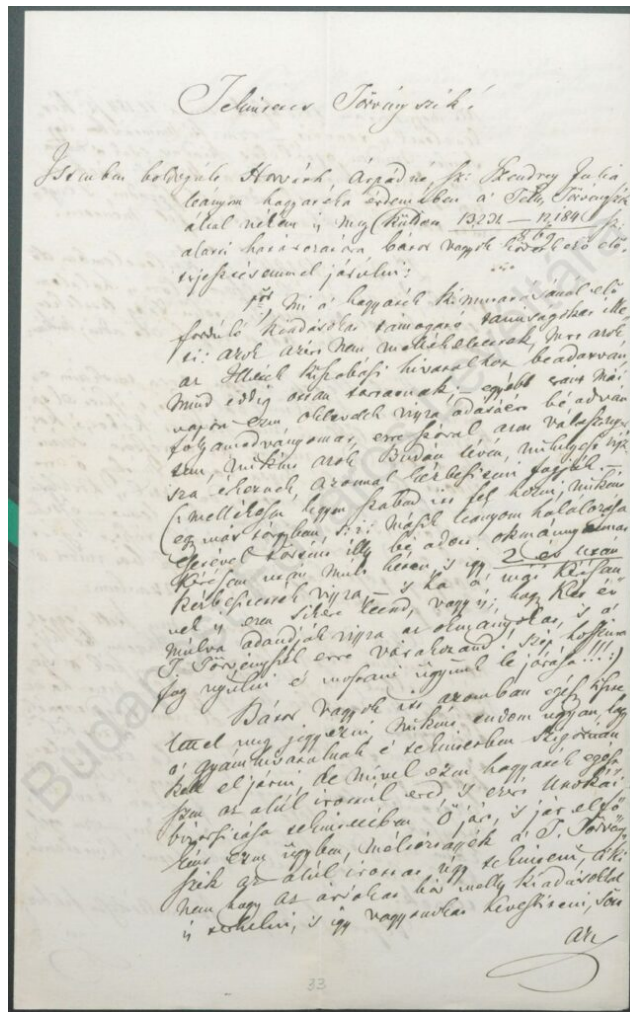 Tekintetes Törvényszék!
Istenben boldogult Horváth Árpádné, sz: Szendrey Julia
leányom hagyatéka érdemében a Ttes Törvényszék
által nékem is meg küldött 13231 — 12,184 sz.
alatti határozatára bátor vagyok következő elő
terjesztésemmel járulni:
1ör Mi a hagyaték kimutatásánál elő
forduló kiadásokat támogató tanuságokat ille
ti: azok azért nem mellékeltettek, mert azok
az Illeték kiszabási hivatalhoz beadatván
mind eddig ottan tartatnak; egyébb eránt mái
napon ezen oklevelek vissza adásáért bé adván
folyamodványomat, erre szóval azon választ nyer
tem, miként azok Budán lévén, mihelyest visz
sza érkeznek, azonnal kézbesíteni fogják.
(: mellékesen legyen szabad itt fel hozni, miként
egy más tárgyban t: i: másik leányom halálozása
esetével történt illy bé adott okmányaimat
kérésem után mult héten is így 2 év után
kézbesítették vissza — s ha a mái kérésem
nek is ezen sikere leend, vagy is, hogy két év
mulva adandják vissza az okmányokat, s a
T. Törvényszék erre várakozand! szép hosszura
fog nyulni e mostani ügyünk lejárása!!! :)
Bátor vagyok itt azomban egész tiszte
lettel meg jegyezni, miként tudom ugyan, hogy
a gyámhatóságnak e tekintetben szigorúan
kell eljárni, de mivel ezen hagyaték egés
szen az alól irottól ered, s ezért Unokái
biztosítása tekintetében Ő jár, s jár el fő
kint ezen ügyben, méltóztassék a T. Törvény
szék az alól irottat úgy tekinteni, a ki
nem hogy az árvákat bár melly kiadásokkal
is terhelni, s így vagyonukat kevesíteni, sőt
az
33
Budapest Főváros Levéltára